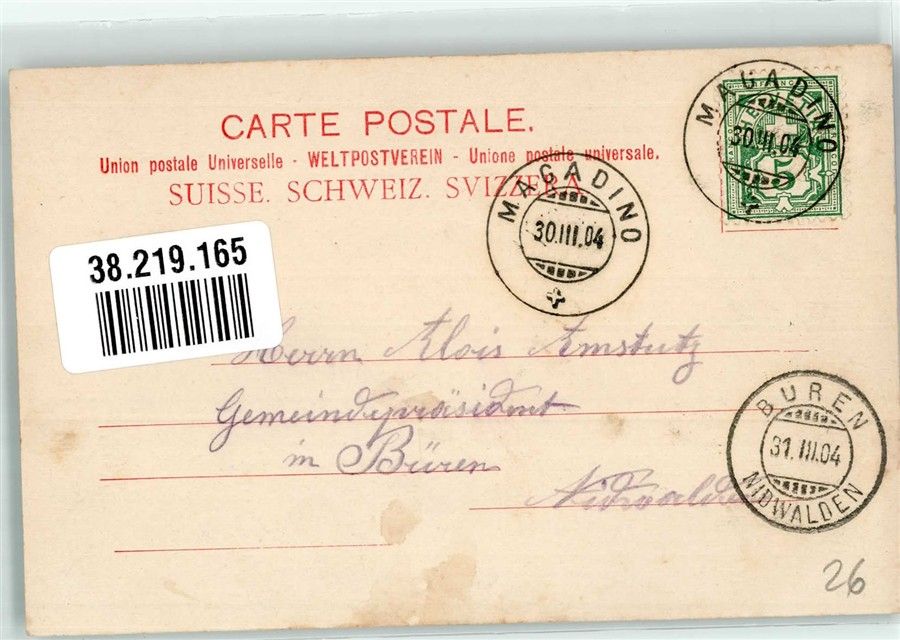 CARTE POSTALE.
Union postale Universelle - WELTPOSTVEREIN - Unione postale universale.
SUISSE. SCHWEIZ. SVIZZERA.
MAGADINO
30.III.04
5
MAGADINO
30.III.04
38.219.165
Herrn Alois Amstutz
Gemeindepräsident
in Büren
Nidwalden
BUREN
31.III.04
NIDWALDEN
26